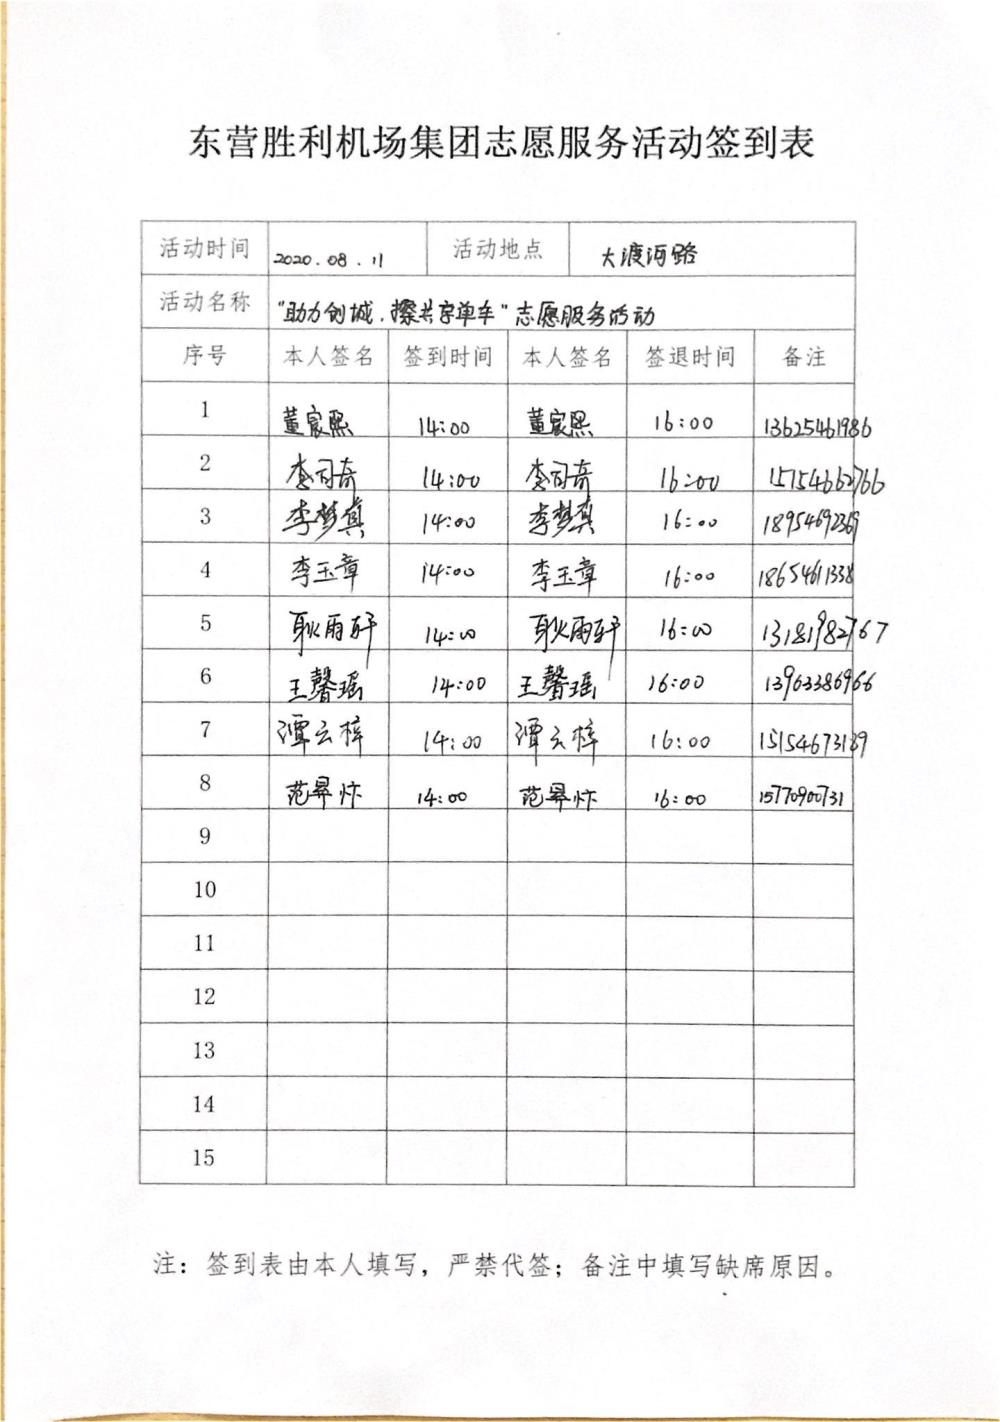 东营胜利机场集团志愿服务活动签到表
活动时间 2020.08.11 活动地点 大渡河路
活动名称 "助力创城,擦共享单车"志愿服务活动
序号 本人签名 签到时间 本人签名 签退时间 备注
1 董宸熙 14:00 董宸熙 16:00 13625461986
2 李司奇 14:00 李司奇 16:00 15154662766
3 李梦真 14:00 李梦真 16:00 18954692369
4 李玉章 14:00 李玉章 16:00 18654611338
5 耿雨轩 14:00 耿雨轩 16:00 13181982767
6 王馨瑶 14:00 王馨瑶 16:00 13963386966
7 谭云梓 14:00 谭云梓 16:00 15154673189
8 范昪忭 14:00 范昪忭 16:00 15770900731
9
10
11
12
13
14
15
注：签到表由本人填写，严禁代签；备注中填写缺席原因。